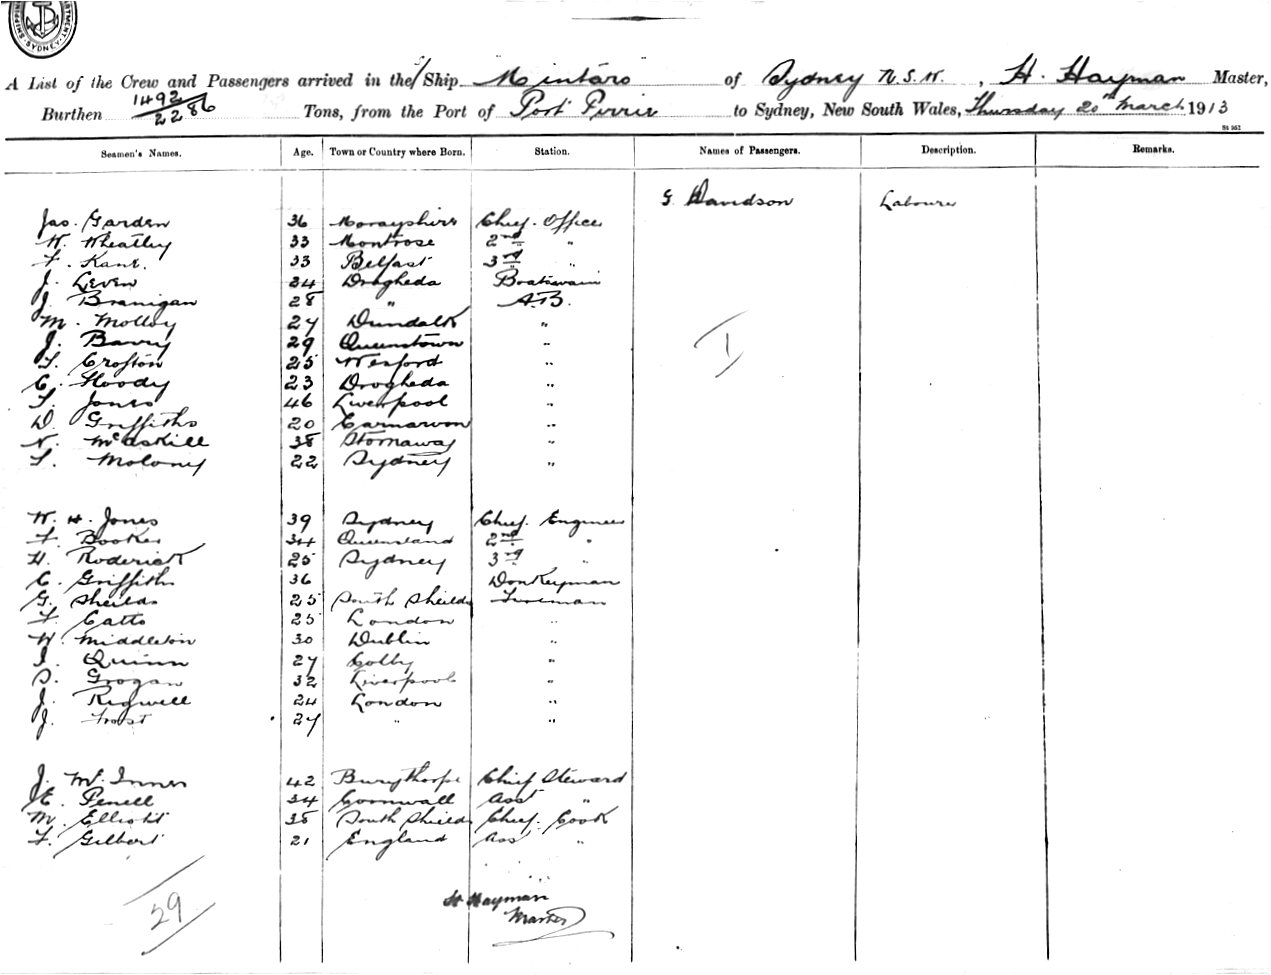 SHIPPING DEPARTMENT. SYDNEY
A List of the Crew and Passengers arrived in the S/ Ship Mintaro of Sydney N.S.W. , H. Hayman Master,
Burthen 1492/2286 Tons, from the Port of Port Pirrie to Sydney, New South Wales, Thursday 20th March 1913
St 952
Seamen's Names. Age. Town or Country where Born. Station. Names of Passengers. Description. Remarks.
G. Davidson Labourer
Jas. Garden 36 Morayshire Chief Officer
W. Wheatley 33 Montrose 2nd "
F. Kane. 33 Belfast 3rd "
J. Leven 34 Drogheda Boatswain
J. Branigan 28 " A.B.
M. Molloy 27 Dundalk "
J. Barry 29 Queenstown "
T. Crofton 25 Wexford "
C. Hoody 23 Drogheda "
T. Jones 46 Liverpool "
D. Griffiths 20 Carnarvon "
N. McAskill 38 Stornaway "
T. Molony 22 Sydney "
1
W. H. Jones 39 Sydney Chief Engineer
F. Booker 34 Queensland 2nd "
H. Roderick 25 Sydney 3rd "
C. Griffiths 36 Donkeyman
G. Sheilds 25 South Sheilds Fireman
F. Catto 25 London "
W. Middleton 30 Dublin "
J. Quinn 27 "
S. Grogan 32 Liverpool "
J. Rigwell 24 London "
J. Frost 27 " "
J. McInnes 42 Burythorpe Chief Steward
E. Penell 34 Cornwall Asst "
M. Elliott 38 South Shields Chief Cook
F. Gilbert 21 England Asst "
29
H Hayman
Master